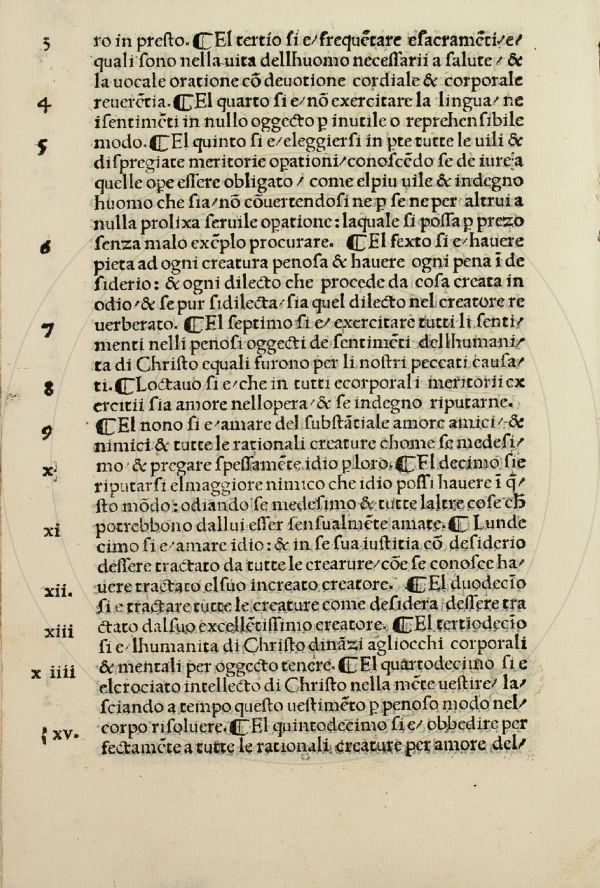 3 ro in presto. ⸿El tertio si e/frequētare esacramēti/e/
quali sono nella uita dellhuomo necessarii a salute/ &
la uocale oratione cō deuotione cordiale & corporale
4 reuerētia. ⸿El quarto si e/nō exercitare la lingua/ne
isentimēti in nullo oggecto p inutile o reprehensibile
5 modo. ⸿El quinto si e/eleggiersi in pte tutte le uili &
dispregiate meritorie opationi/conoscēdo se de iure/a
quelle ope essere obligato/ come elpiu uile & indegno
huomo che sia/nō cōuertendosi ne p se ne per altrui a
nulla prolixa seruile opatione: laquale si possa p prezo
6 senza malo exēplo procurare. ⸿El sexto si e/hauere
pieta ad ogni creatura penosa & hauere ogni pena ī de
siderio: & ogni dilecto che procede da cosa creata in
odio/& se pur sidilecta/sia quel dilecto nel creatore re
7 uerberato. ⸿El septimo si e/exercitare tutti li senti/
menti nelli penosi oggecti de sentimēti dellhumani/
ta di Christo equali furono per li nostri peccati causa/
8 ti. ⸿Loctauo si e/che in tutti ecorporali meritorii ex
ercitii sia amore nellopera/& se indegno riputarne.
9 ⸿El nono si e/amare del substātiale amore amici/&
nimici & tutte le rationali creature chome se medesi/
x mo & pregare spessamēte idio p loro. ⸿El decimo sie
riputarsi elmaggiore nimico che idio possi hauere ī q̄/
sto mōdo: odiando se medesimo & tutte laltre cose ch̄
xi potrebbono dallui esser sensualmēte amate. ⸿ Lunde
cimo si e/amare idio: & in se sua iustitia cō desiderio
dessere tractato da tutte le crearure/cōe se conosce ha/
xii. uere tractato elsuo increato creatore. ⸿El duodecīo
si e tractare tutte le creature come desidera dessere tra
xiii ctato dalsuo excellētissimo creatore. ⸿El tertiodecīo
si e/lhumanita di Christo dināzi agliocchi corporali
x iiii & mentali per oggecto tenere. ⸿El quartodecimo si e
elcrociato intellecto di Christo nella mēte uestire/la/
sciando a tempo questo uestimēto p penoso modo nel/
xv. corpo risoluere. ⸿El quintodecimo si e/ obbedire per
fectamēte a tutte le rationali creature per amore del/